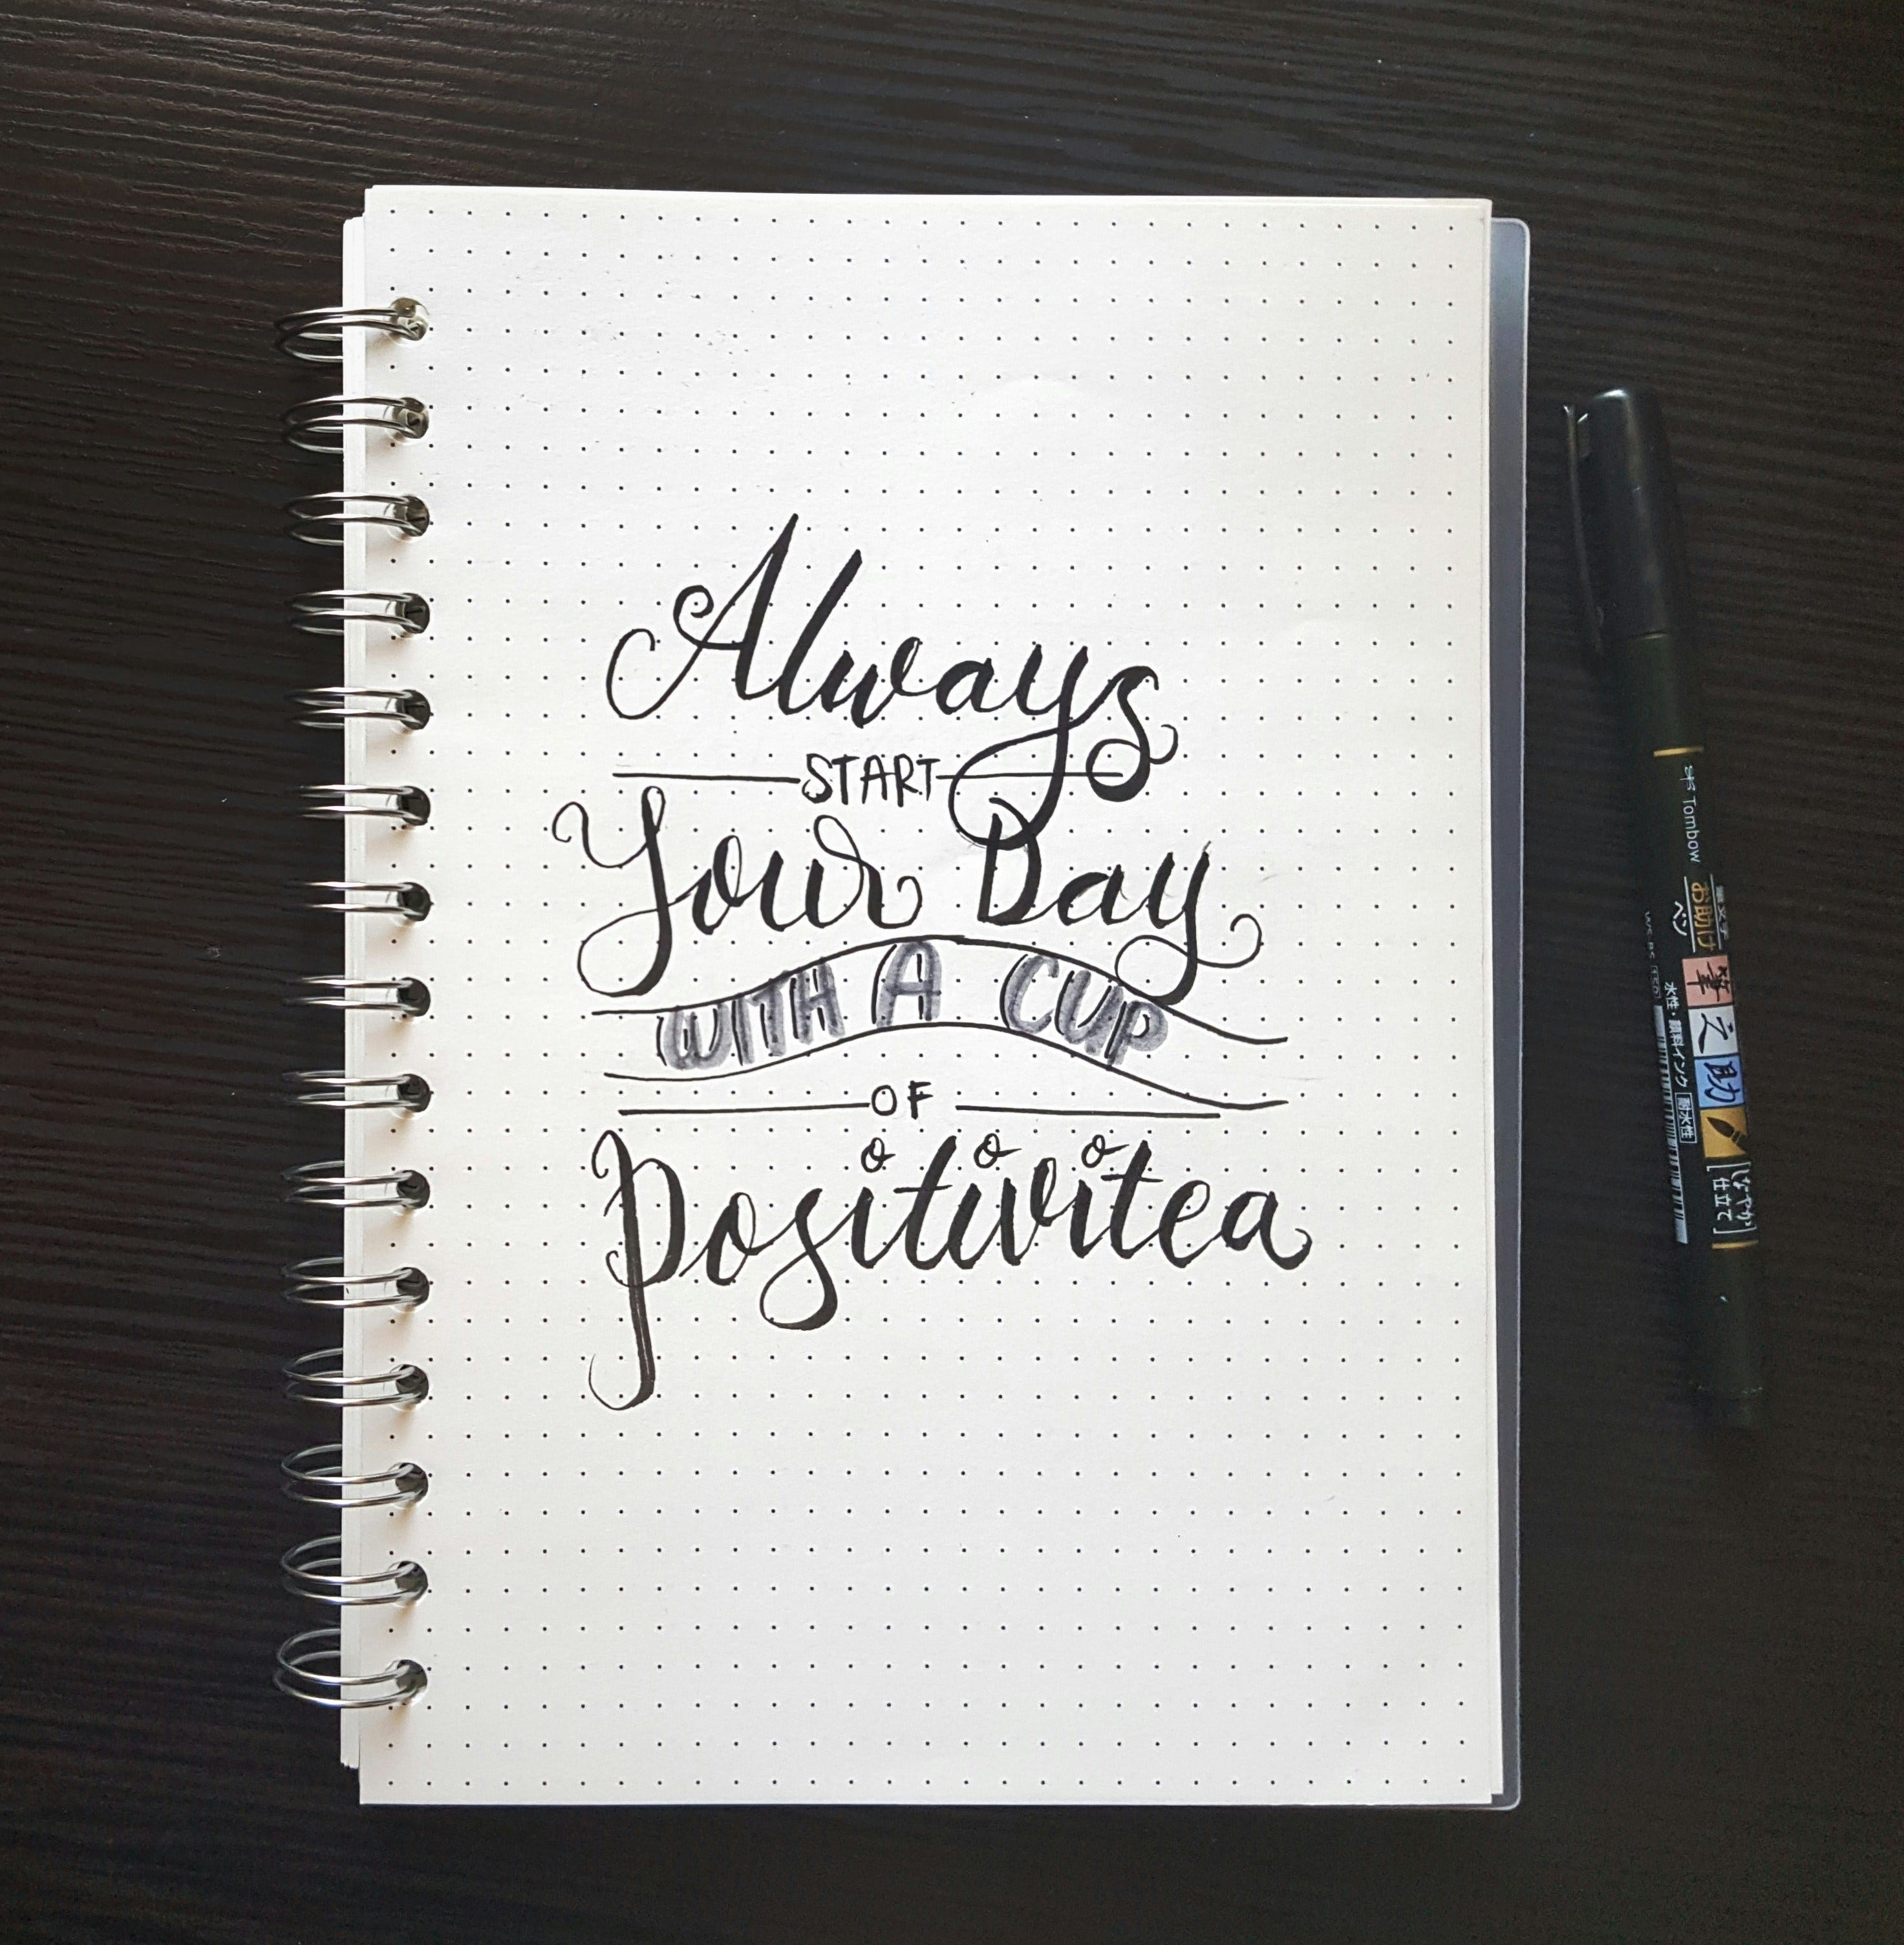 Always
START
Your Day
WITH A CUP
OF
Positivitea
Tombow
筆文字
お助け
ペン
筆之助
しなやか
仕立て
水性・顔料インク 耐水性